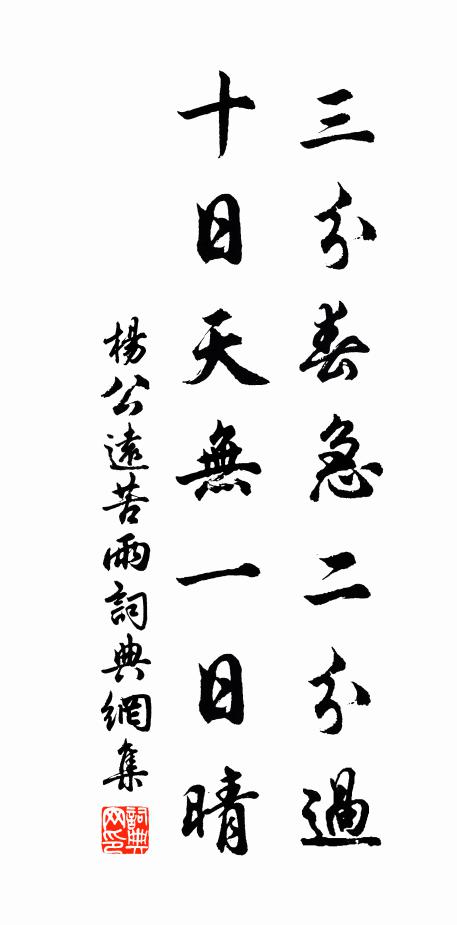 三分春急二分過
十日天無一日晴
楊公遠苦雨詞典網集
詞典網印